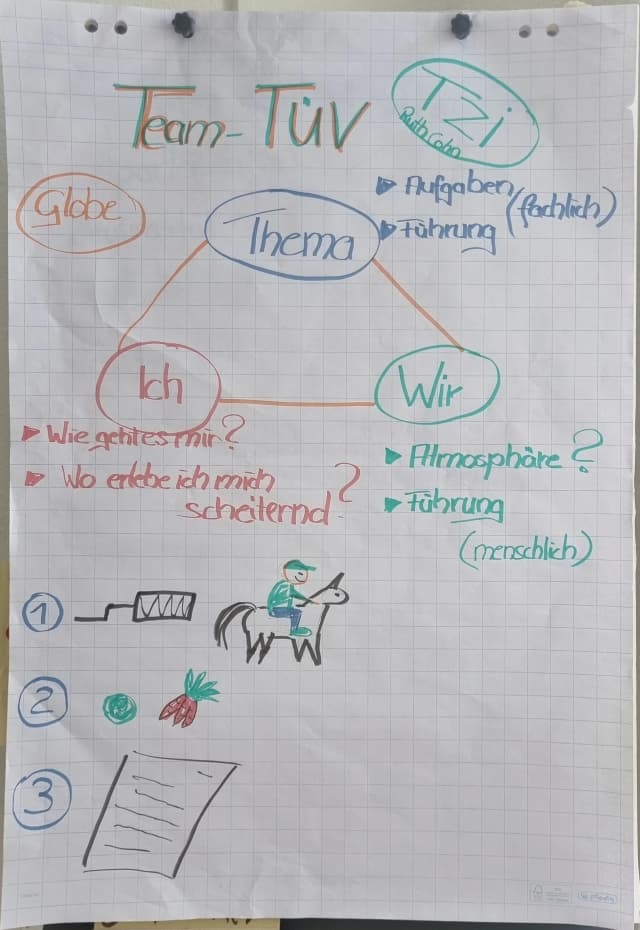 Team-TÜV
TZi
Ruth Cohn
Globe
Thema
▶ Aufgaben
▶ Führung
(fachlich)
Ich
Wir
▶ Wie geht es mir?
▶ Wo erlebe ich mich
scheiternd?
▶ Atmosphäre?
▶ Führung
(menschlich)
1
2
3